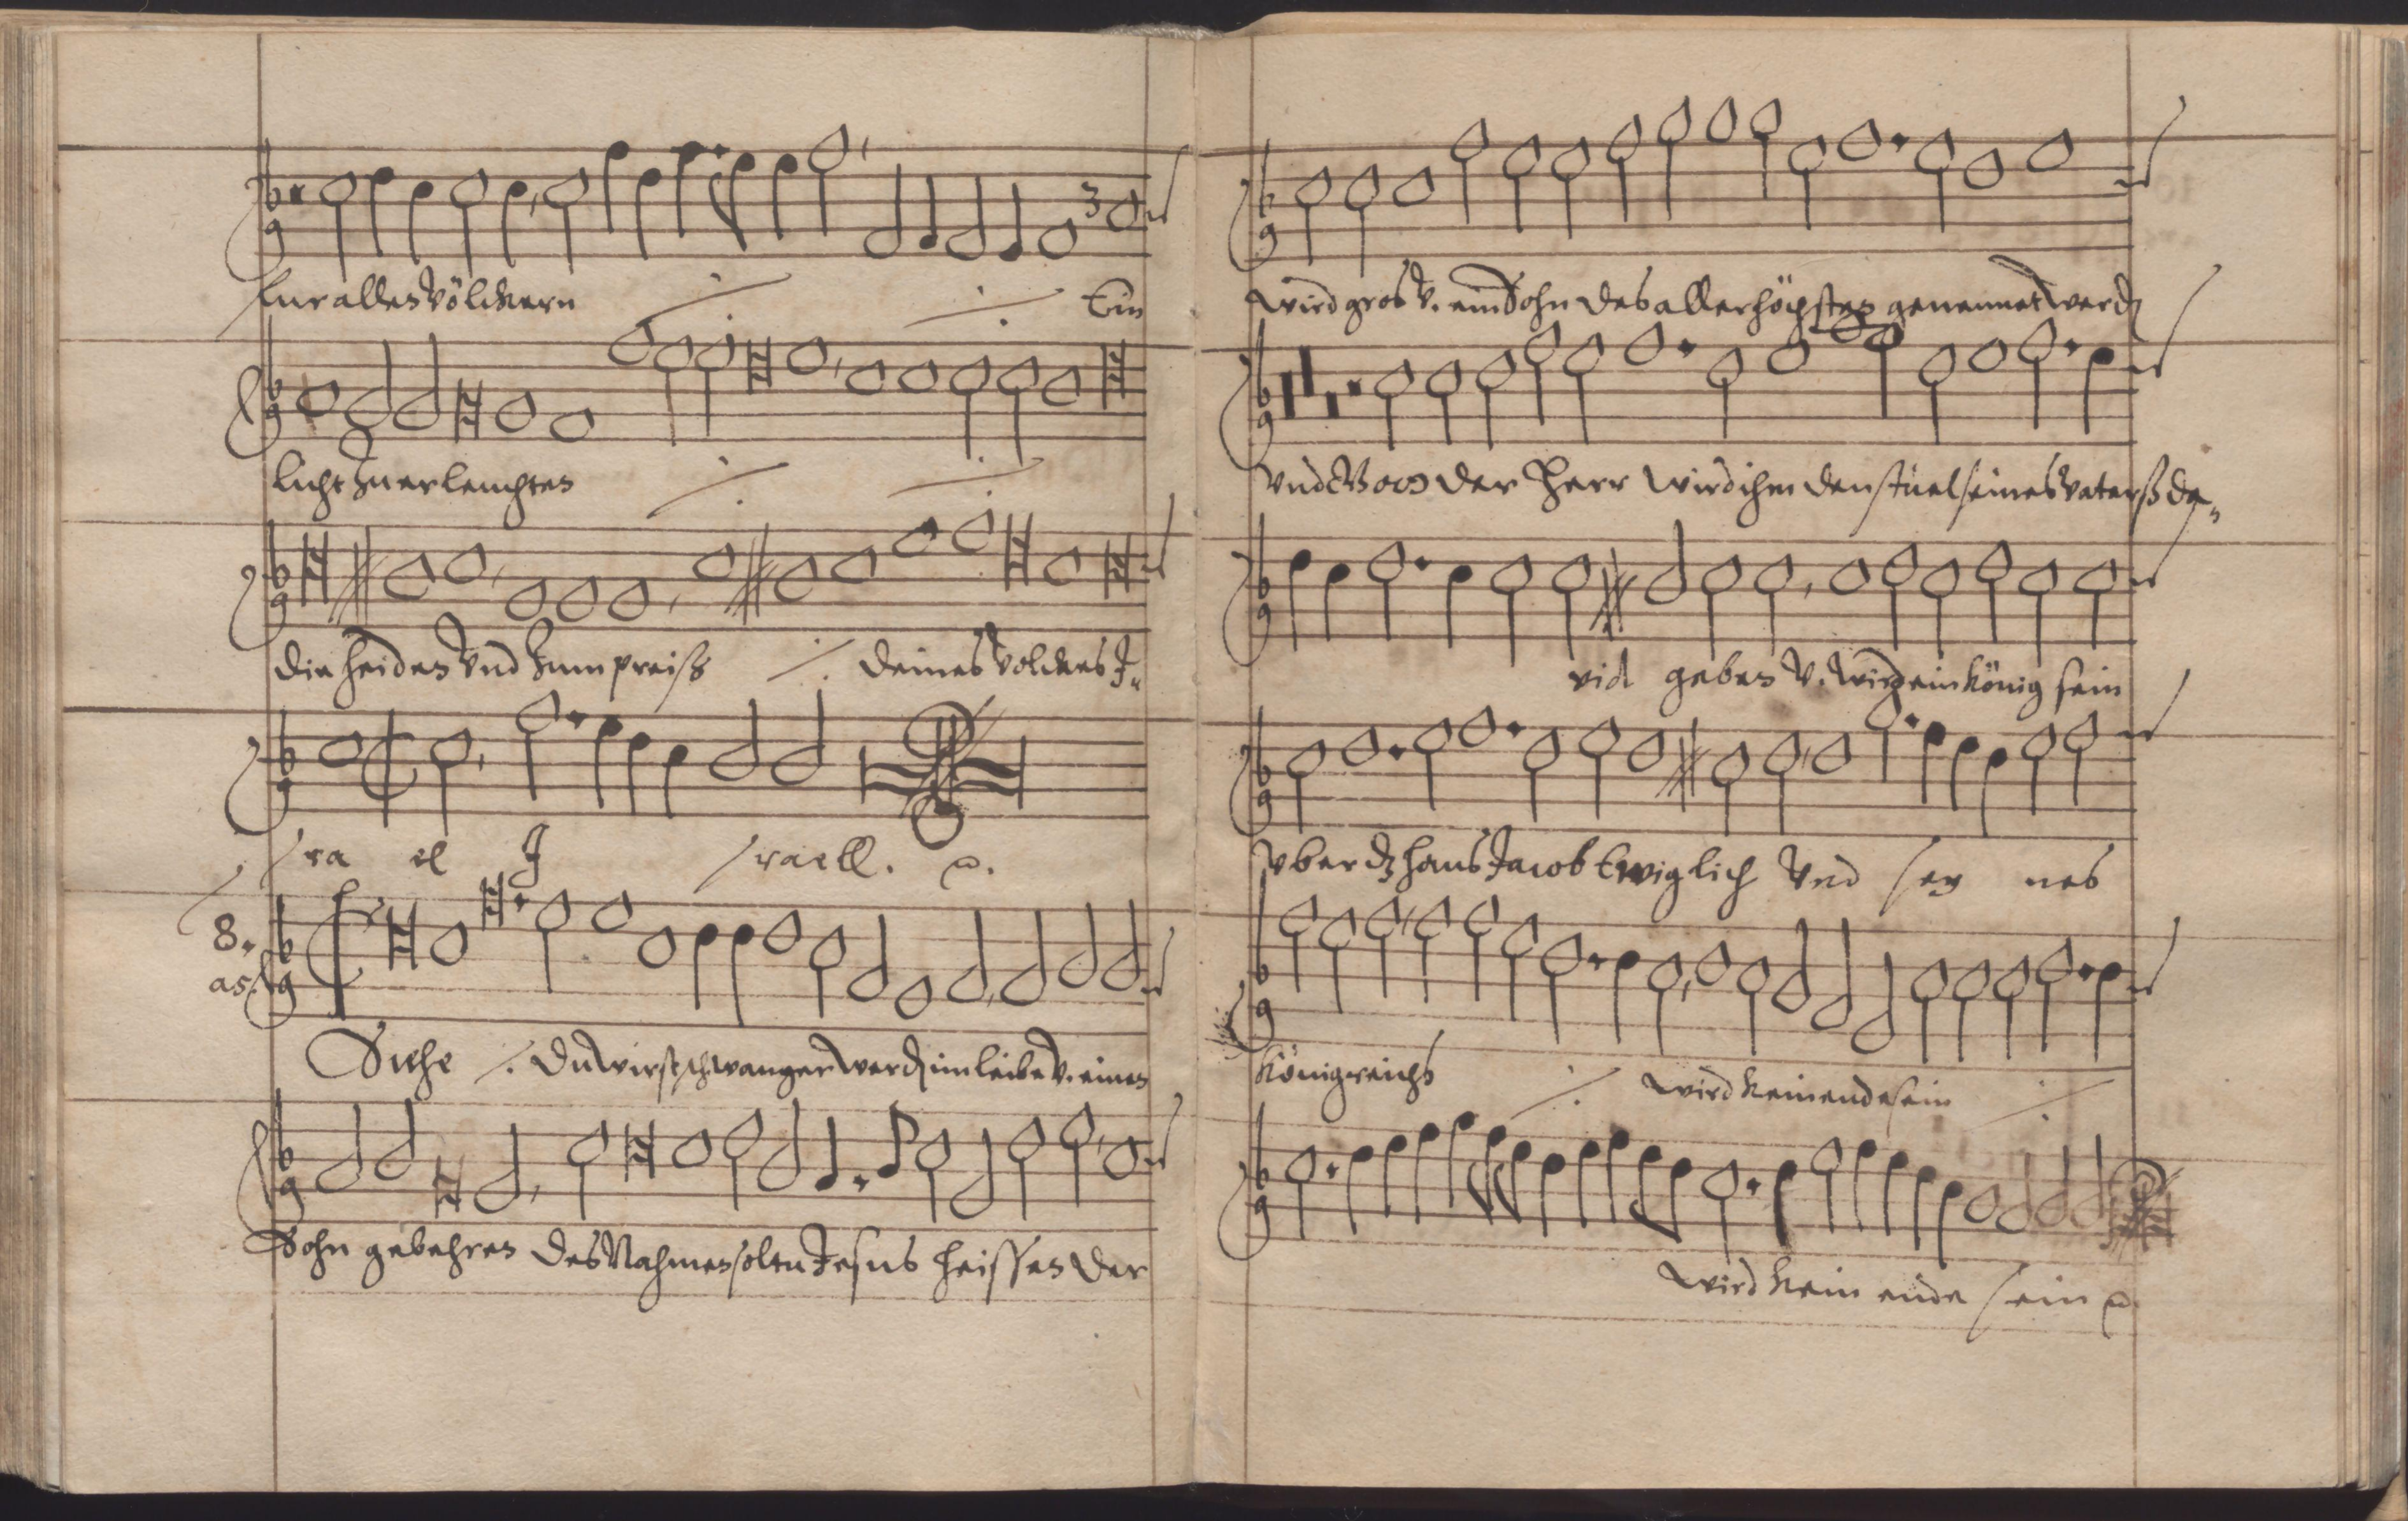 fur allen Völckern ⁒ ⁒ Ein
licht zu erleuchten ⁒ ⁒
die heiden Vnd zum preiß ⁒ deines Volckes J„
sra el J sraell.
8.
Siehe ⁒ du wirst schwanger werdn im leibe v. einen
Sohn gebehren des Nahmen soltu Jesus heissen der
wird gros v. ein Sohn des aller höchsten genennet werdn
Vnd Gott der Herr wird ihm den stuel seines Vaterß da„
vid geben v. wird ein König sein
Vber dz haus Jacob Ewiglich Vnd sey nes
Königreichs ⁒ wird kein ende sein ⁒
wird kein ende sein